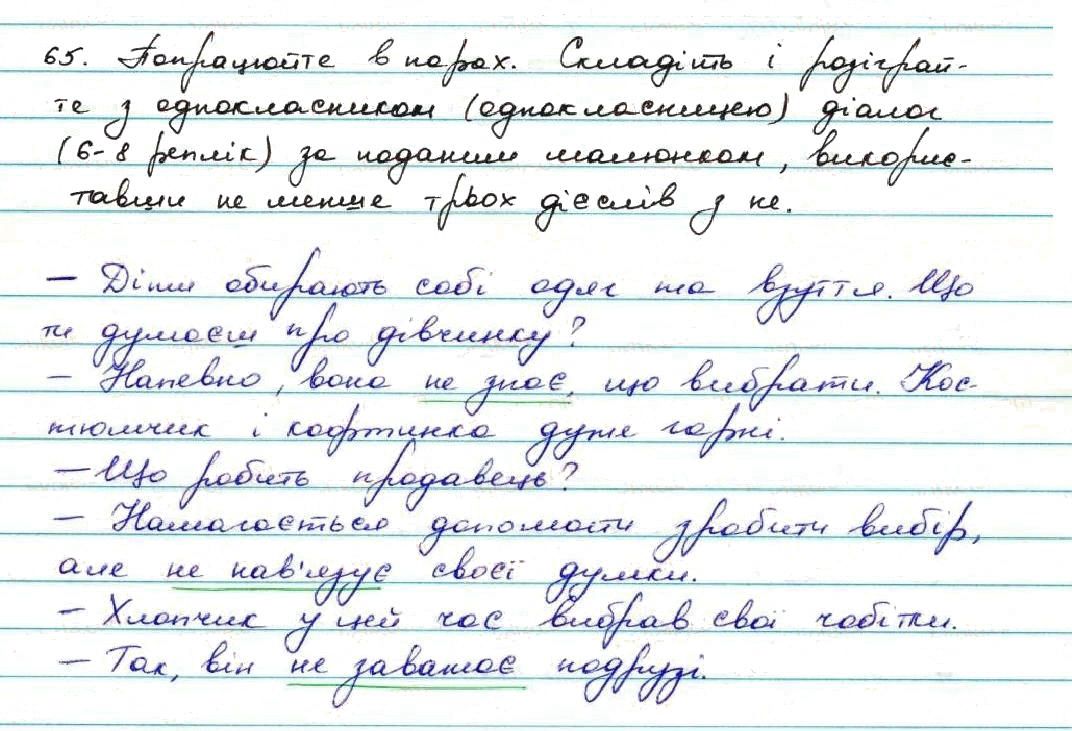 65. Попрацюйте в парах. Складіть і розіграй-
те з однокласником (однокласницею) діалог
(6-8 реплік) за поданим малюнком, викорис-
тавши не менше трьох дієслів з не.
— Діти обирають собі одяг та взуття. Що
ти думаєш про дівчинку?
— Напевно, вона не знає, що вибрати. Кос-
тюмчик і кофтинка дуже гарні.
— Що робить продавець?
— Намагається допомогти зробити вибір,
але не нав'язує своєї думки.
— Хлопчик у цей час вибрав свої чобітки.
— Так, він не заважає подрузі.